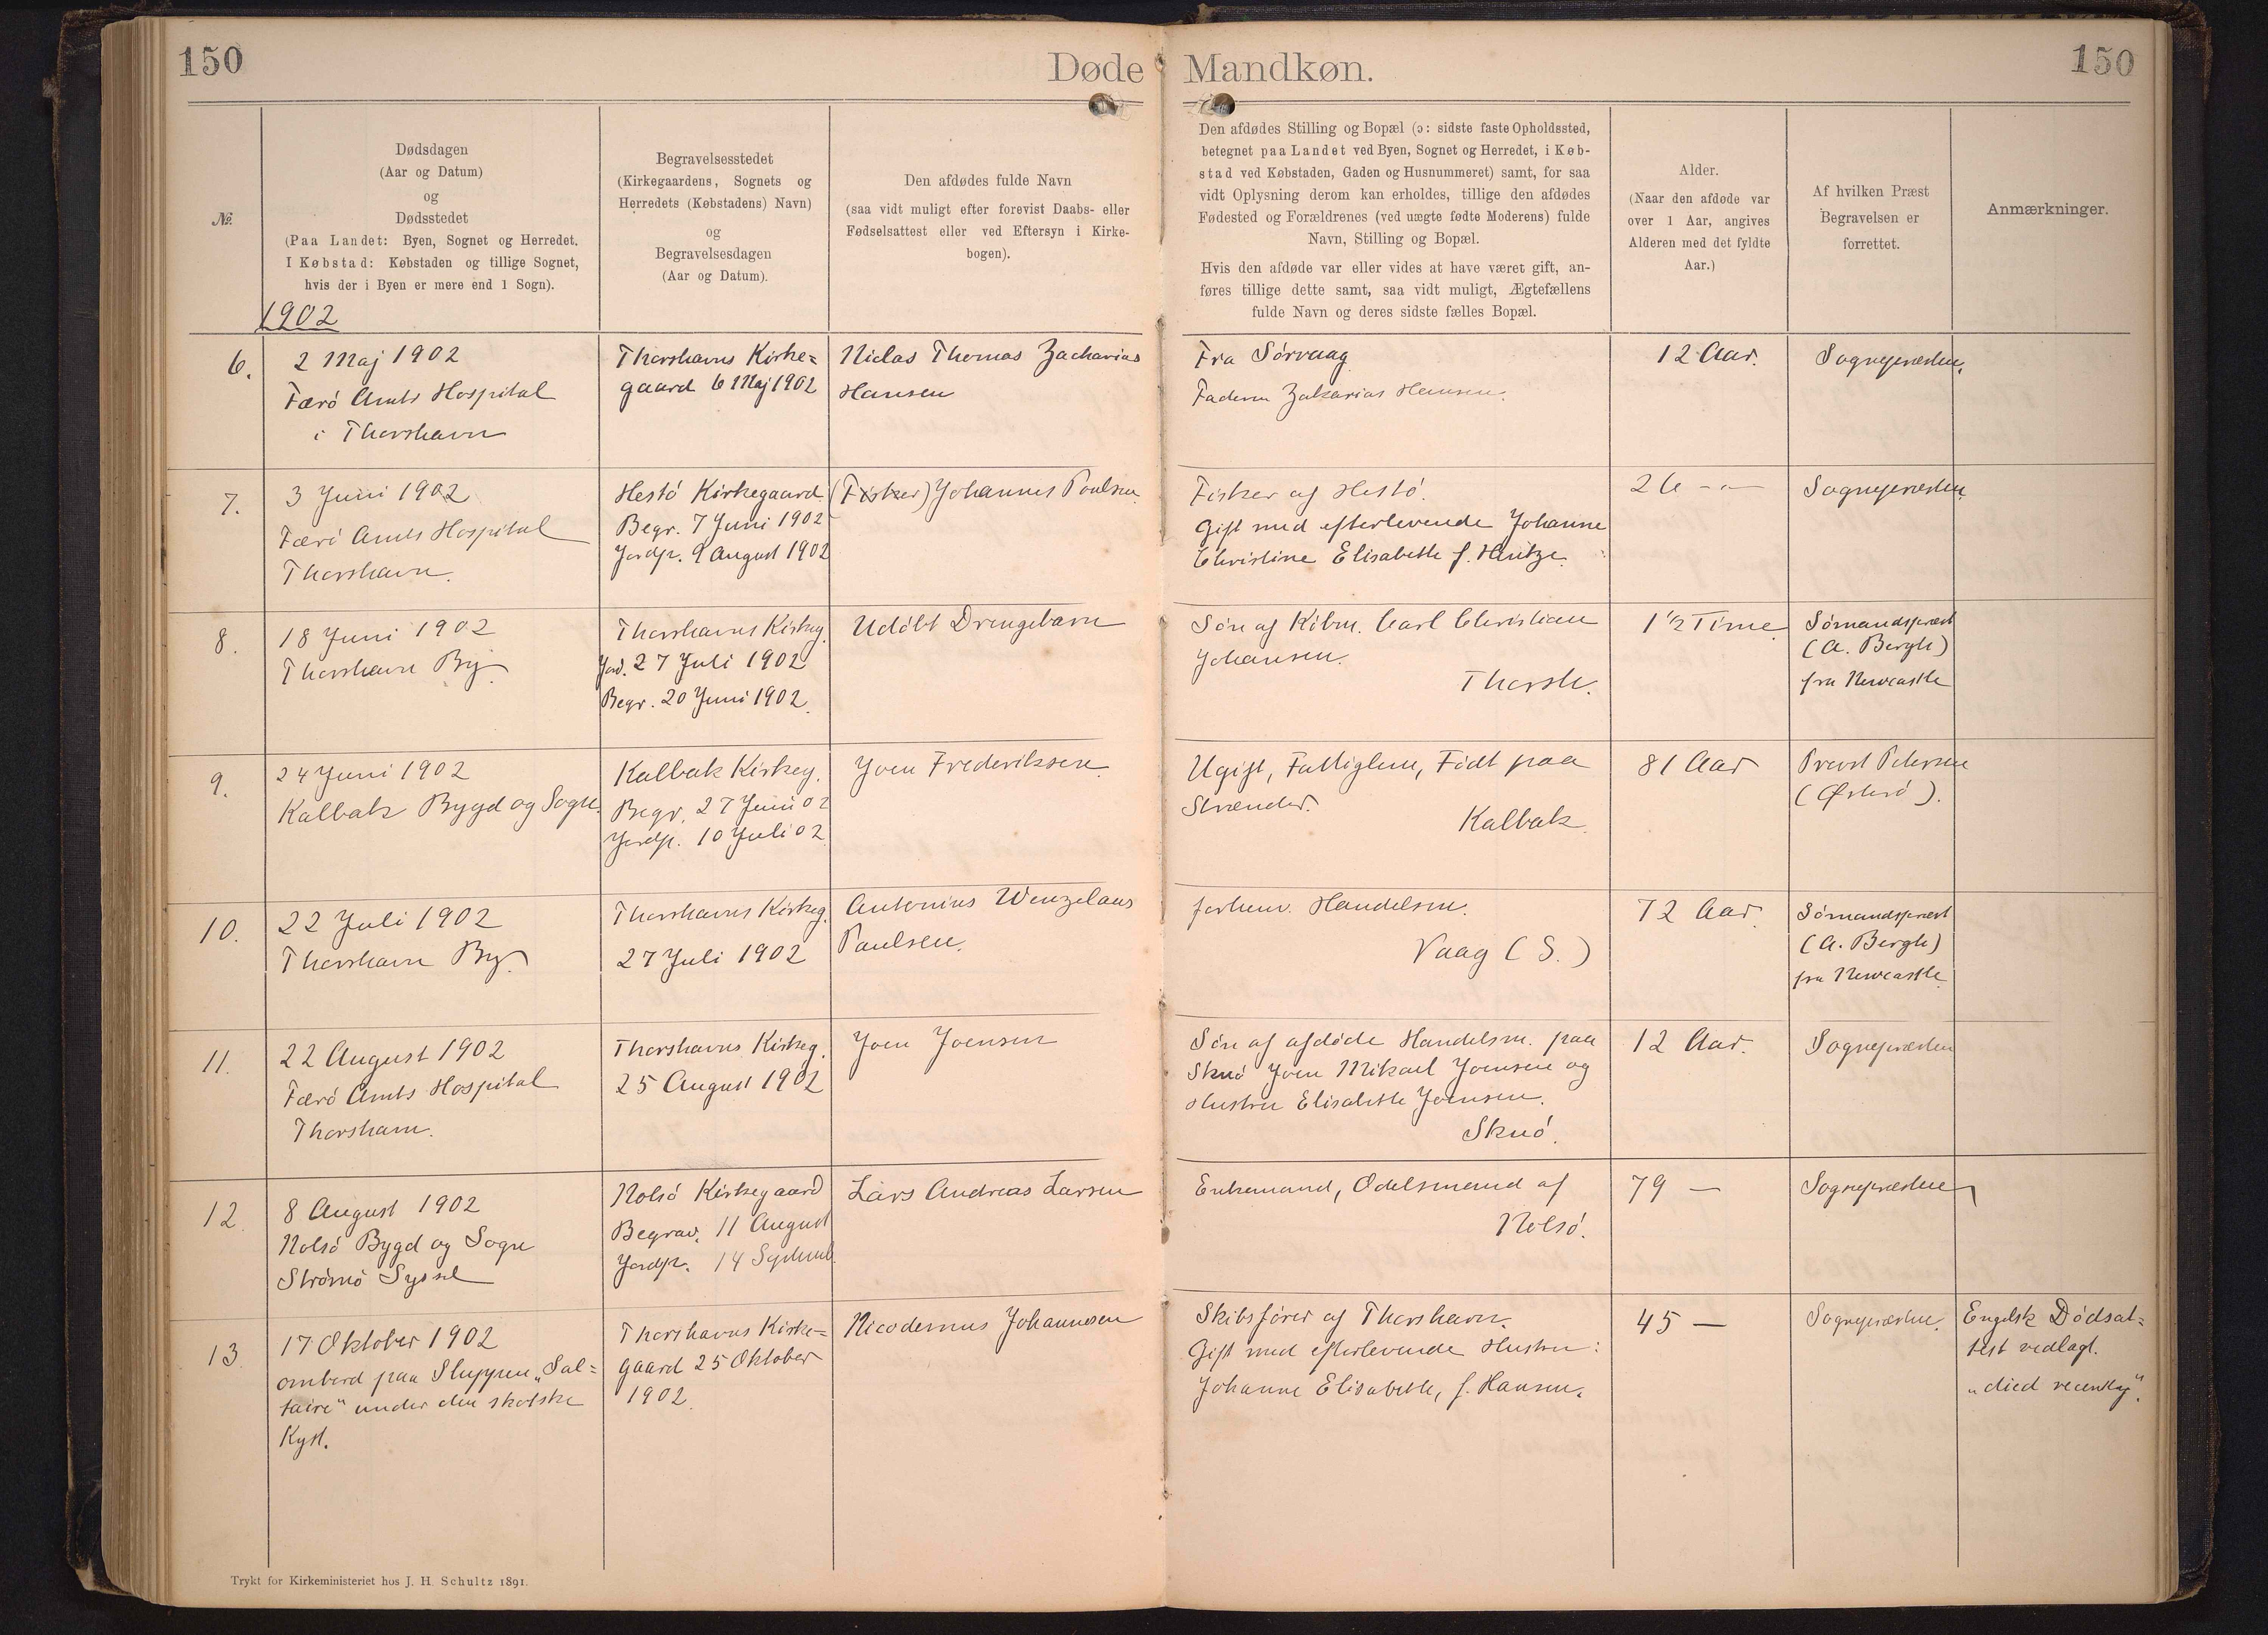 150
Døde Mandkøn.
150
№
Dødsdagen
(Aar og Datum)
og
Dødsstedet
(Paa Landet: Byen, Sognet og Herredet.
I Købstad: Købstaden og tillige Sognet,
hvis der i Byen er mere end 1 Sogn).
Begravelsesstedet
(Kirkegaardens, Sognets og
Herredets (Købstadens) Navn)
og
Begravelsesdagen
(Aar og Datum).
Den afdødes fulde Navn
(saa vidt muligt efter forevist Daabs- eller
Fødselsattest eller ved Eftersyn i Kirke-
bogen).
Den afdødes Stilling og Bopæl (ɔ: sidste faste Opholdssted,
betegnet paa Landet ved Byen, Sognet og Herredet, i Køb-
stad ved Købstaden, Gaden og Husnummeret) samt, for saa
vidt Oplysning derom kan erholdes, tillige den afdødes
Fødested og Forældrenes (ved uægte fødte Moderens) fulde
Navn, Stilling og Bopæl.
Hvis den afdøde var eller vides at have været gift, an-
føres tillige dette samt, saa vidt muligt, Ægtefællens
fulde Navn og deres sidste fælles Bopæl.
Alder.
(Naar den afdøde var
over 1 Aar, angives
Alderen med det fyldte
Aar.)
Af hvilken Præst
Begravelsen er
forrettet.
Anmærkninger.
1902
6.
2 Maj 1902
Færö Amts Hospital
i Thorshavn
Thorshavns Kirke=
gaard 6 Maj 1902
Niclas Thomas Zacharias
Hansen
Fra Sörvaag
Faderen Zakarias Hansen.
12 Aar.
Sognepræsten.
7.
3 Juni 1902
Færö Amts Hospital
Thorshavn.
Hestö Kirkegaard
Begr. 7 Juni 1902
Jordp. 9 August 1902
(Fisker) Johannes Poulsen
Fisker af Hestö.
Gift med efterlevende Johanne
Christine Elisabeth f. Hentze.
26 - " -
Sognepræsten
8.
18 Juni 1902
Thorshavn By.
Thorshavns Kirkeg.
Jord. 27 Juli 1902
Begr. 20 Juni 1902.
Udöbt Drengebarn
Sön af Köbm. Carl Christian
Johansen.
Thorsh.
1½ Time
Sömandspræst
(A. Bergh)
fra Newcastle
9.
24 Juni 1902
Kalbak Bygd og Sogn.
Kalbak Kirkeg.
Begr. 27 Juni 02
Jordp. 10 Juli 02
Joen Frederiksen.
Ugift, Fattiglem, Födt paa
Strænder.
Kalbak.
81 Aar
Provst Petersen
(Österö).
10.
22 Juli 1902
Thorshavn By.
Thorshavns Kirkeg.
27 Juli 1902
Antonius Wenzelaus
Paulsen.
forhenv. Handelsm.
Vaag (S.)
72 Aar.
Sömandspræst
(A. Bergh)
fra Newcastle
11.
22 August 1902
Færö Amts Hospital
Thorshavn.
Thorshavns Kirkeg.
25 August 1902
Joen Joensen
Sön af afdöde Handelsm. paa
Skuö Joen Mikael Joensen og
Hustru Elisabeth Joensen.
Skuö.
12 Aar.
Sognepræsten
12.
8 August 1902
Nolsö Bygd og Sogn
Strömö Syssel
Nolsö Kirkegaard
Begrav. 11 August
Jordp. 14 Septemb.
Lars Andreas Larsen
Enkemand, Odelsmand af
Nolsö.
79 —
Sognepræsten
13.
17 Oktober 1902
ombord paa Sluppen „Sal=
taire" under den skotske
Kyst.
Thorshavns Kirke=
gaard 25 Oktober
1902.
Nicodemus Johannesen
Skibsförer af Thorshavn.
Gift med efterlevende Hustru:
Johanne Elisabeth, f. Hansen.
45 —
Sognepræsten.
Engelsk Dödsat=
test vedlagt.
„died recently".
Trykt for Kirkeministeriet hos J. H. Schultz 1891.